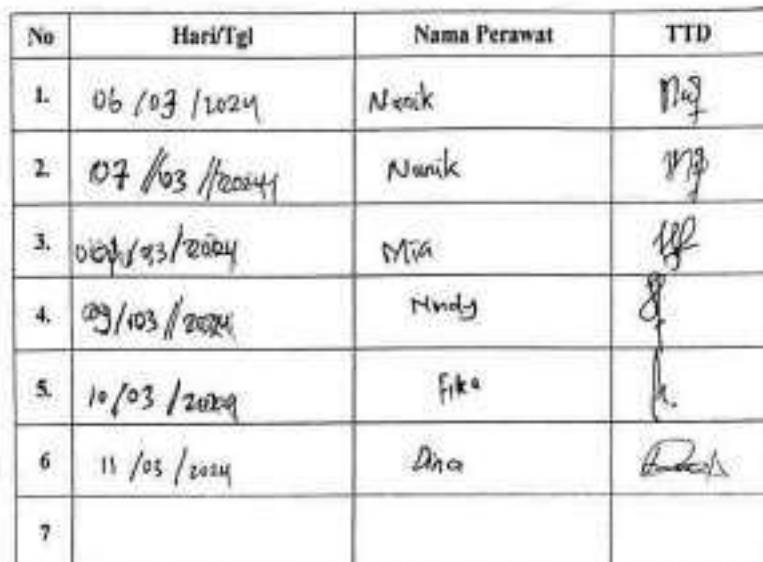 No Hari/Tgl Nama Perawat TTD
1. 06 /03 /2024 Nanik
2. 07 //03 //2024 Nanik
3. /03/2024 Mia
4. 09/03//2024
5. 10/03 /2024 Fika
6 11 /03 /2024 Dina
7